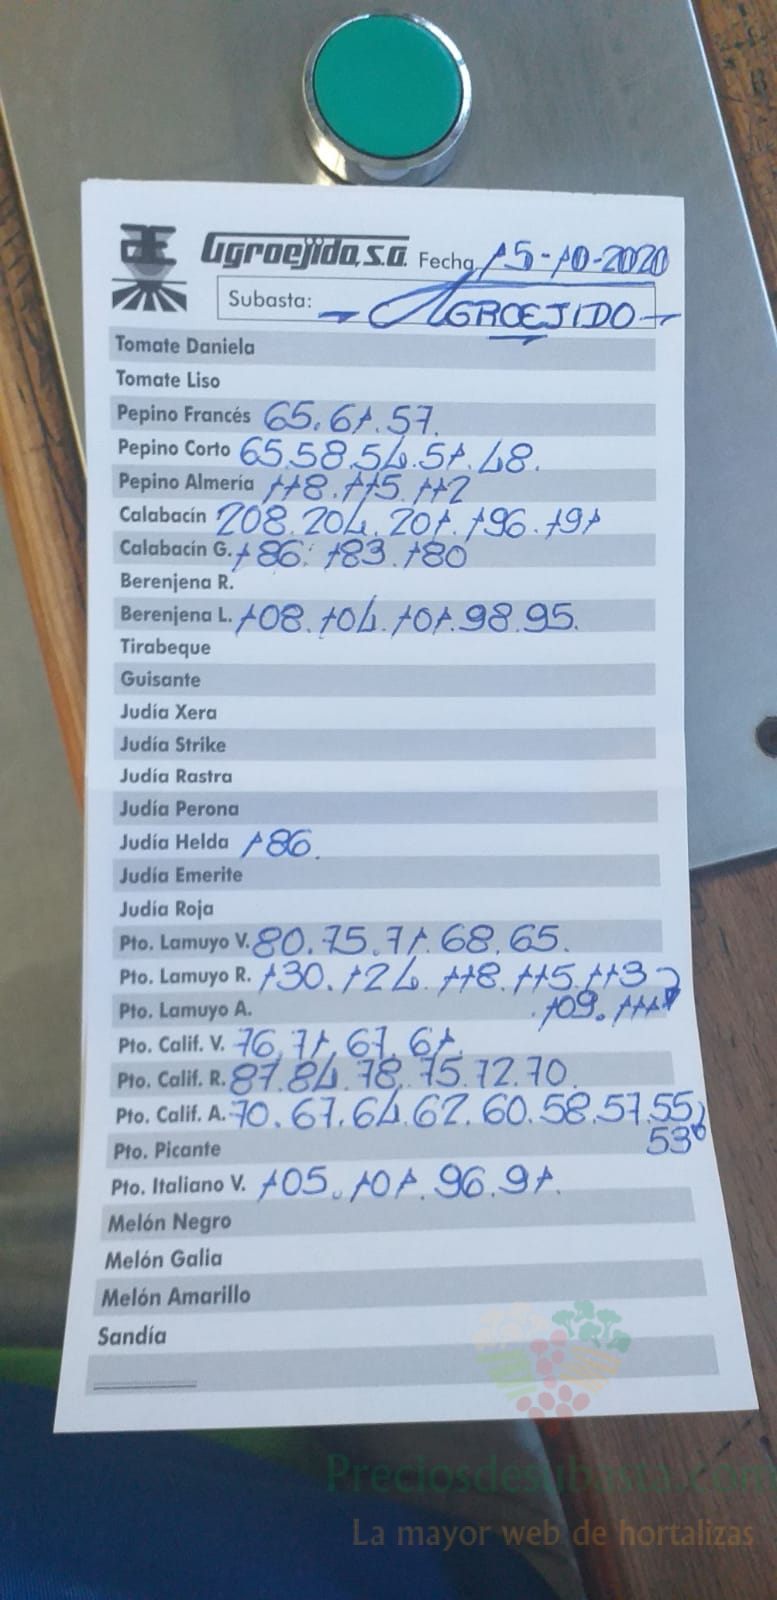 Agroejido, s.a. Fecha 15-10-2020
Subasta: - AGROEJIDO -
Tomate Daniela
Tomate Liso
Pepino Francés 65.61.57.
Pepino Corto 65.58.54.51.48.
Pepino Almería 118.115.112
Calabacín 208.204.201.196.191
Calabacín G. 186.183.180
Berenjena R.
Berenjena L. 108.104.101.98.95.
Tirabeque
Guisante
Judía Xera
Judía Strike
Judía Rastra
Judía Perona
Judía Helda 186.
Judía Emerite
Judía Roja
Pto. Lamuyo V. 80.75.71.68.65.
Pto. Lamuyo R. 130.124.118.115.113
Pto. Lamuyo A. .109.111
Pto. Calif. V. 76.71.67.61.
Pto. Calif. R. 87.84.78.75.72.70.
Pto. Calif. A. 70.67.64.62.60.58.57.55
Pto. Picante 53
Pto. Italiano V. 105.101.96.91.
Melón Negro
Melón Galia
Melón Amarillo
Sandía
Preciosdesubasta.com
La mayor web de hortalizas